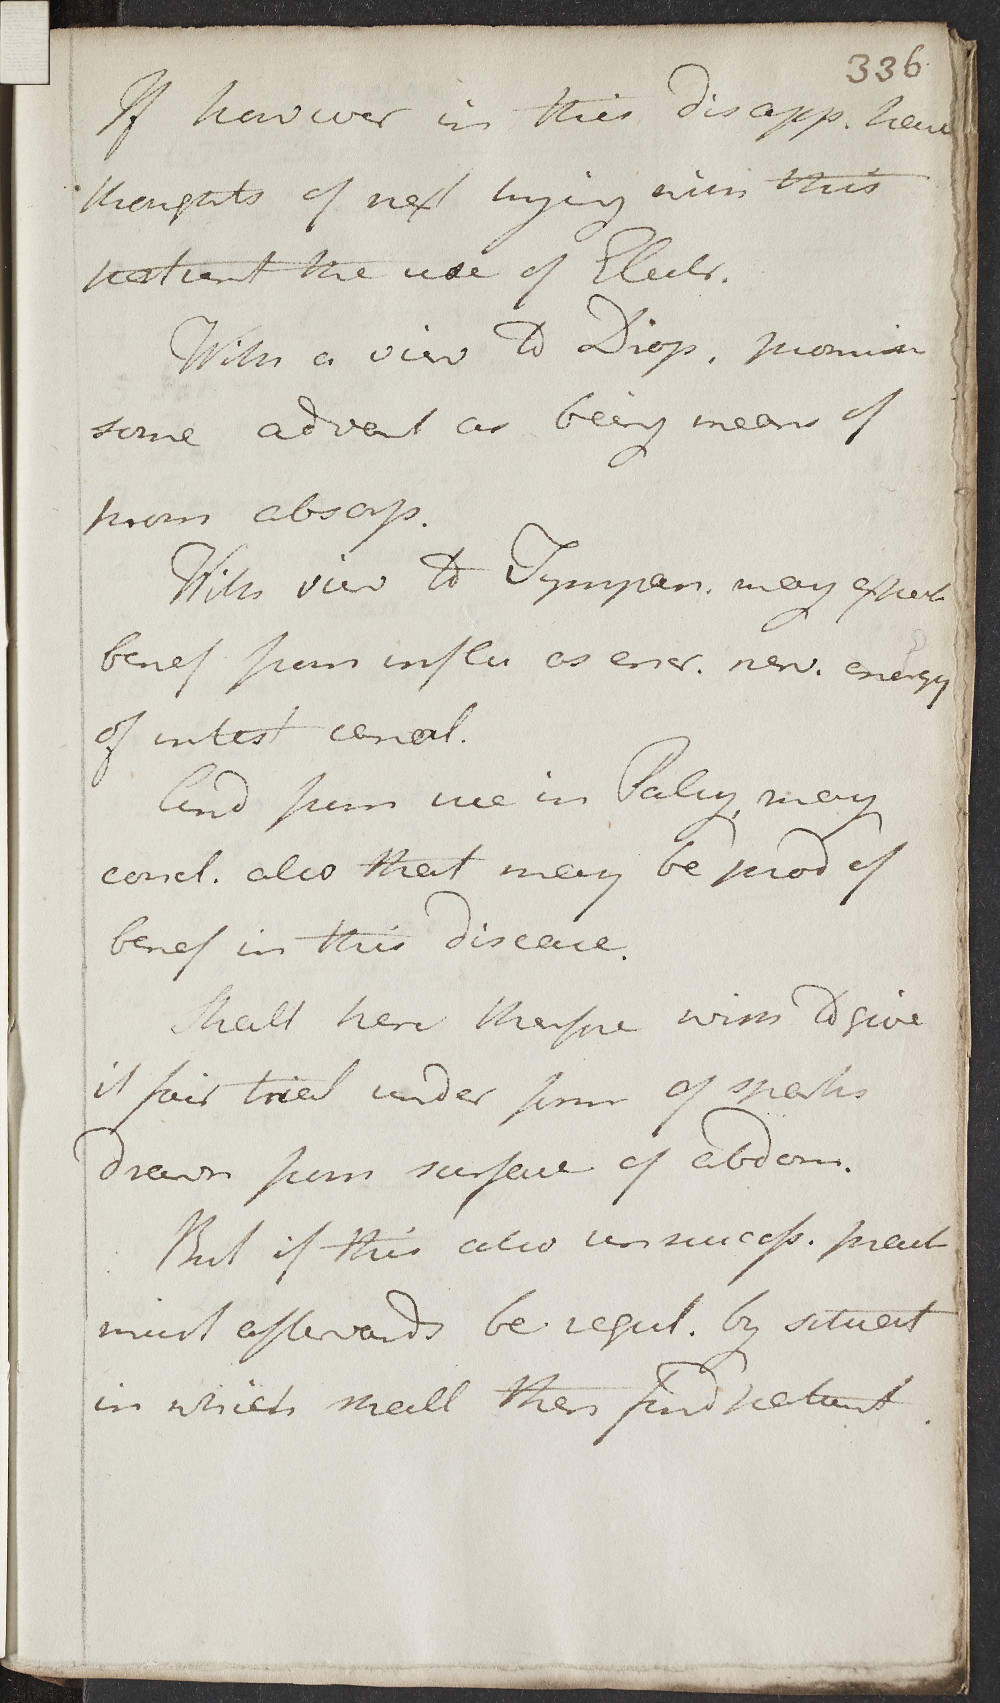 336
If however in this disapp. have
thoughts of next trying with this
patient the use of Electr.
With a view to Drop. promises
some advant as being means of
prom absorp.
With view to Tympan. may expect
benef from influ as ener. nerv. energy
of intest canal.
And from use in Palsy, may
concl. also that may be prod of
benef in this disease.
Shall here therefore wish to give
it fair trial under form of sparks
drawn from surface of abdom.
But if this also unsuccess. pract
must afterwards be regul. by situat
in which shall then find patient.